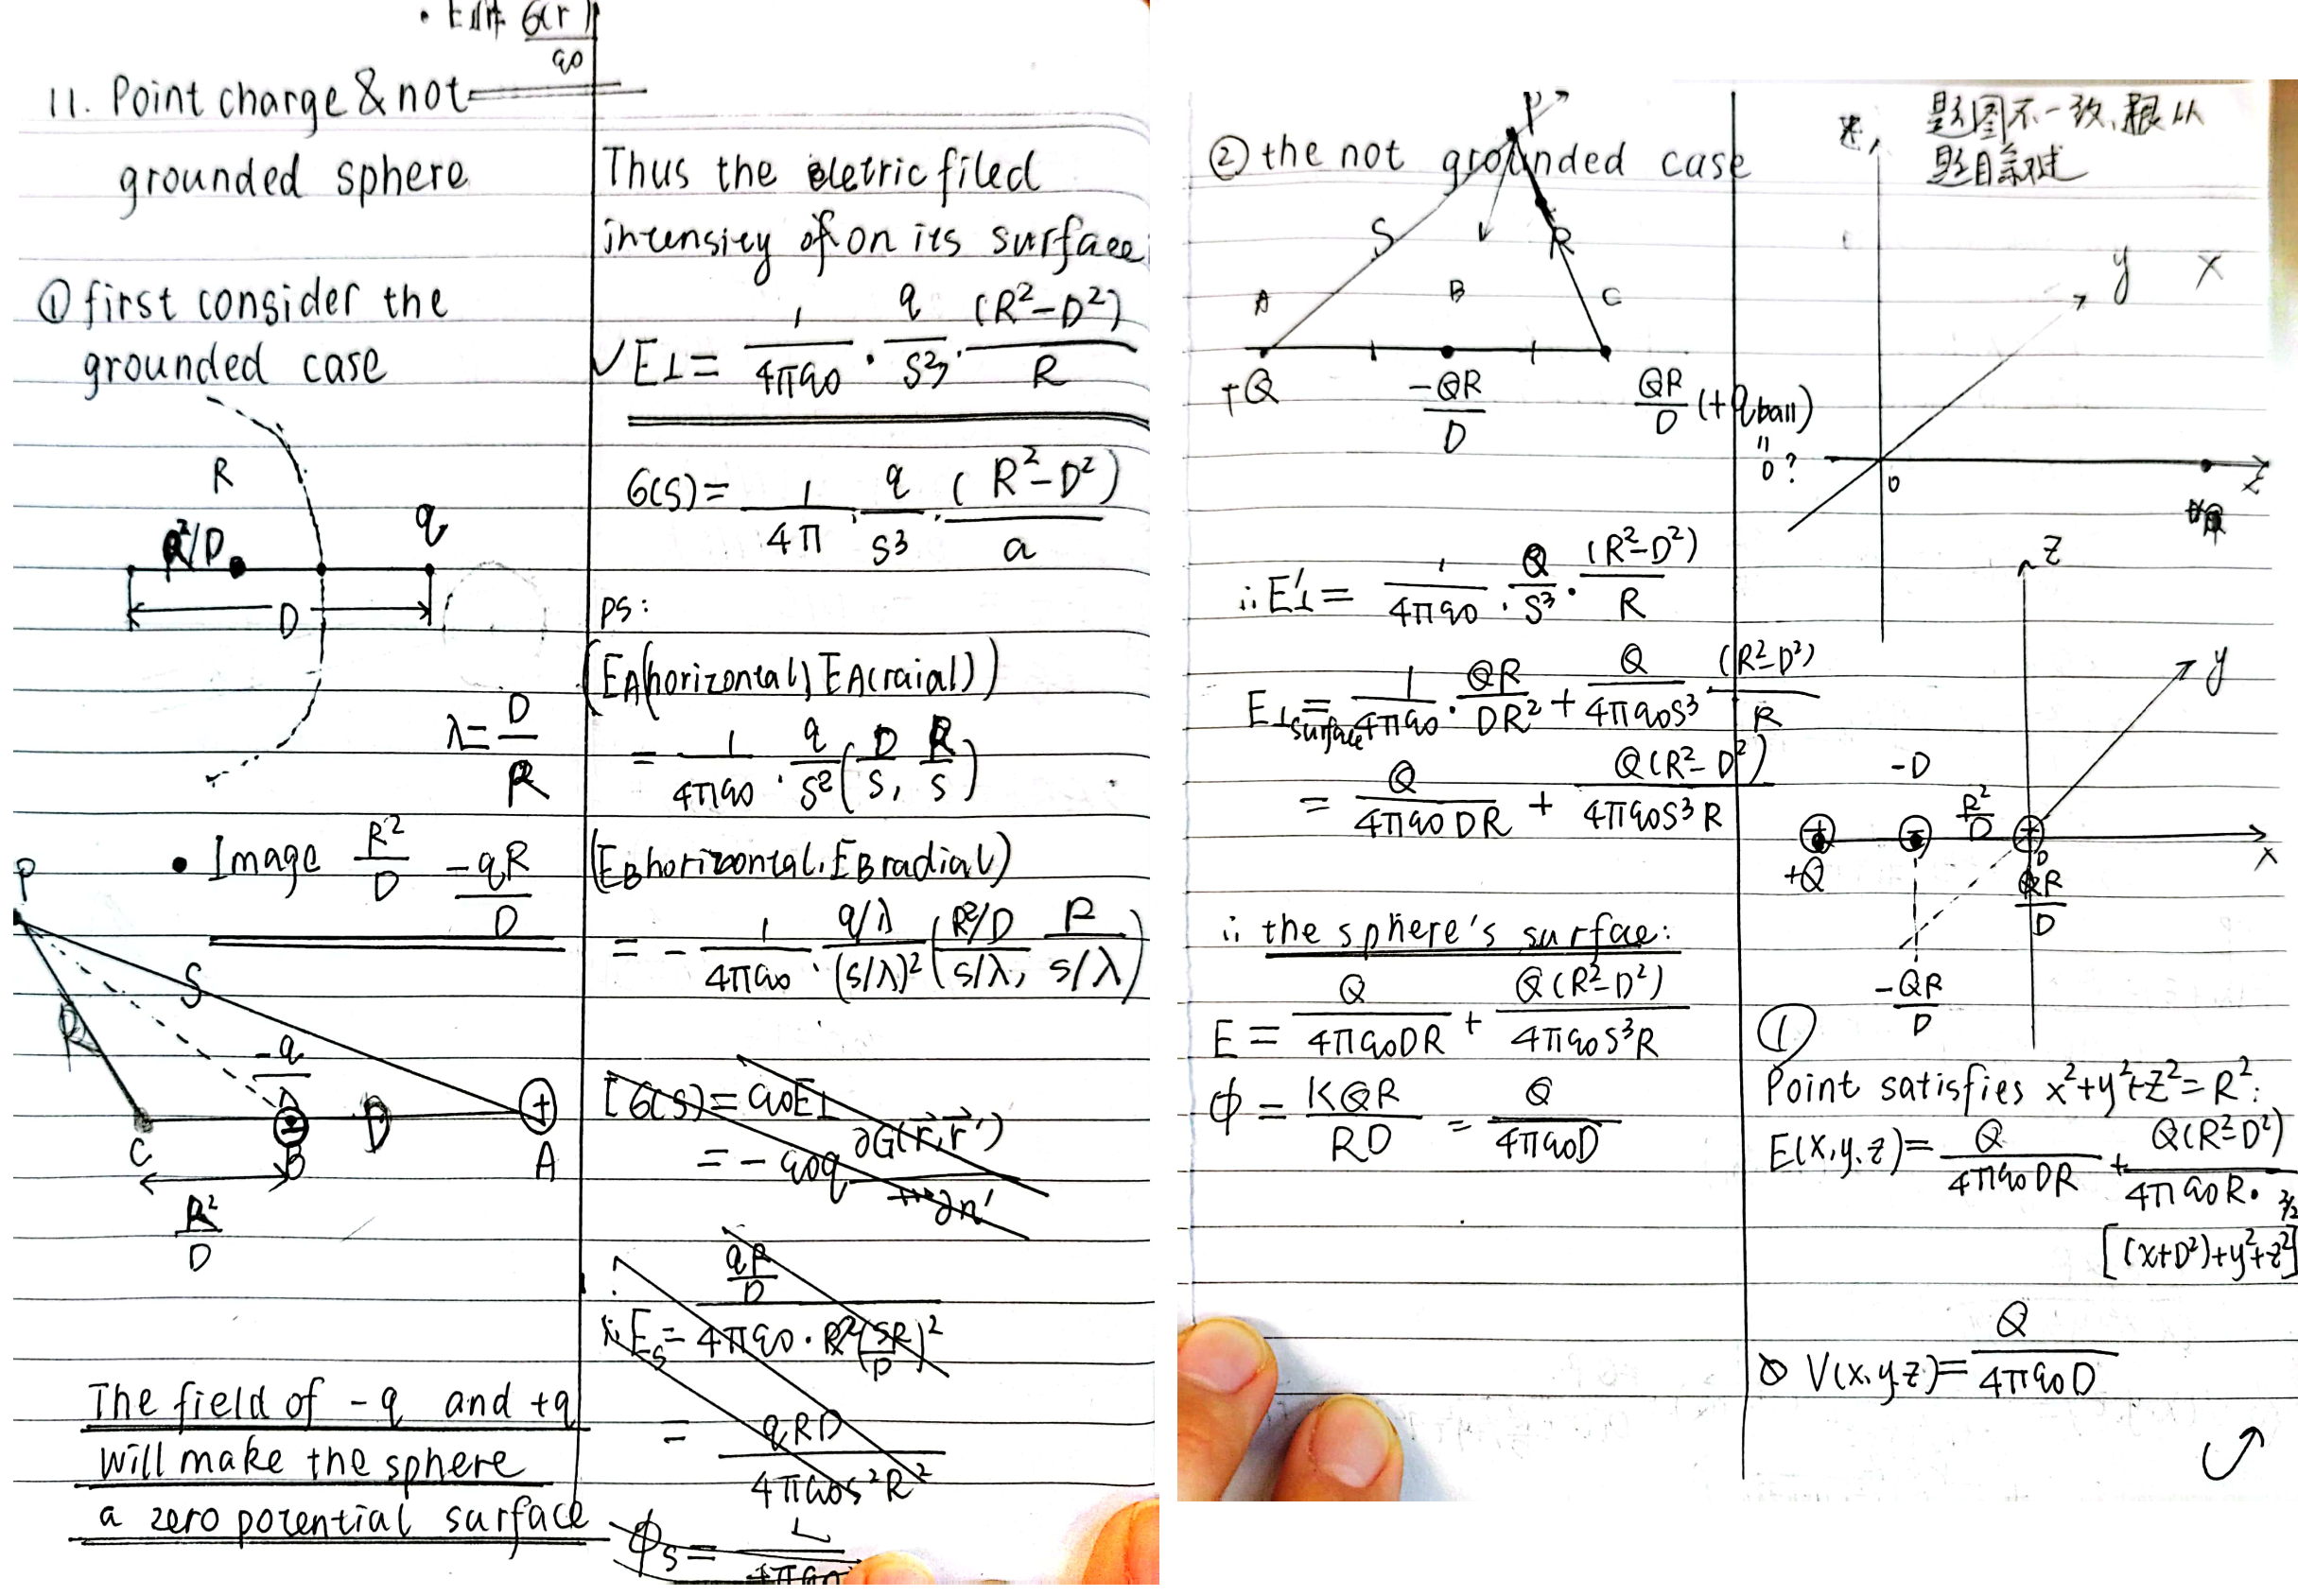 11. Point charge & not
grounded sphere
① first consider the
grounded case
R
R²/D
q
D
λ = D/R
• Image R²/D -qR/D
P
S
R
-q/λ
C
B
D
A
R²/D
The field of -q and +q
will make the sphere
a zero potential surface
Thus the eletric filed
intensity of on its surface
√ E⊥ = 1/4πε0 · q/S³ · (R²-D²)/R
σ(S) = 1/4π · q/S³ · (R²-D²)/a
ps:
(EA(horizontal), EA(raial))
= 1/4πε0 · q/S² (D/S, R/S)
(EB horizontal, EB radial)
= - 1/4πε0 · q/λ/(S/λ)² (R²/D/S/λ, R/S/λ)
② the not grounded case
P
S
R
A
B
C
+Q
-QR/D
QR/D (+qball)
" 0?
∴ E'⊥ = 1/4πε0 · Q/S³ · (R²-D²)/R
E⊥surface = 1/4πε0 · QR/DR² + Q/4πε0S³ (R²-D²)/R
= Q/4πε0DR + Q(R²-D²)/4πε0S³R
∴ the sphere's surfae:
E = Q/4πε0DR + Q(R²-D²)/4πε0S³R
ϕ = KQR/RD = Q/4πε0D
题图不一致,跟从
题目叙述
y
x
0
z
z
y
-D
R²/D
x
+Q
0
QR/D
-QR/D
①
Point satisfies x²+y²+z²=R²:
E(x,y,z) = Q/4πε0DR + Q(R²-D²)/4πε0R·
[(x+D²)+y²+z²]3/2
V(x,y,z) = Q/4πε0D